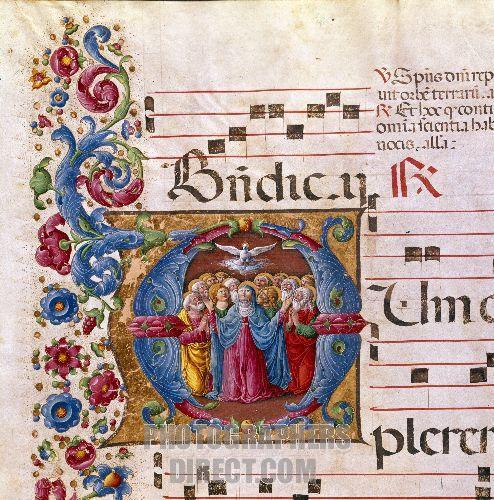 V̄ Sp̄us dn̄i rep
uit orbē terrarū. a
R̄ Et hoc q̄ conti
om̄ia scientia hab
uocis. alla:
Bn̄dic. R̄
Um
plere
PHOTOGRAPHERS
DIRECT.COM